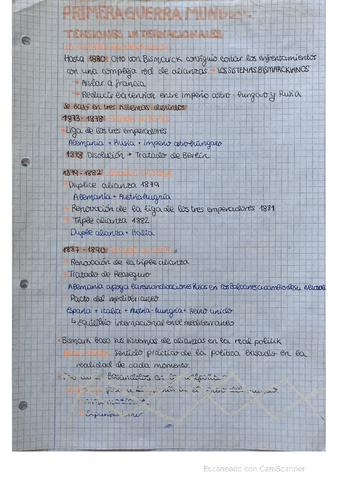 PRIMERA GUERRA MUNDIAL
TENSIONES INTERNACIONALES
Hasta 1890: Otto von Bismarck consiguió evitar los enfrentamientos
con una compleja red de alianzas → LOS SISTEMAS BISMARCKIANOS
Aislar a Francia
Reducir la tensión entre Imperio astro-húngaro y Rusia
se basó en tres sistemas distintos
1873-1878
Liga de los tres emperadores
Alemania + Rusia + Imperio astrohúngaro
1878 Disolución → Tratado de Berlín
1879-1882
Dúplice alianza 1879
Alemania + Austriahungría
Renovación de la liga de los tres emperadores 1881
Triple alianza 1882
Duple alianza + Italia
1887-1890
Renovación de la triple alianza
Tratado de Reaseguro
Alemania apoya las reivindicaciones rusas en los Balcanes a cambio de su
Pacto del mediterráneo
España + Italia + Austria-hungría + Reino unido
↳ Equilibrio internacional en el mediterráneo
Bismark basó los sistemas de alianzas en la real politik
sentido práctico de la política basado en la
realidad de cada momento.
Escaneado con CamScanner